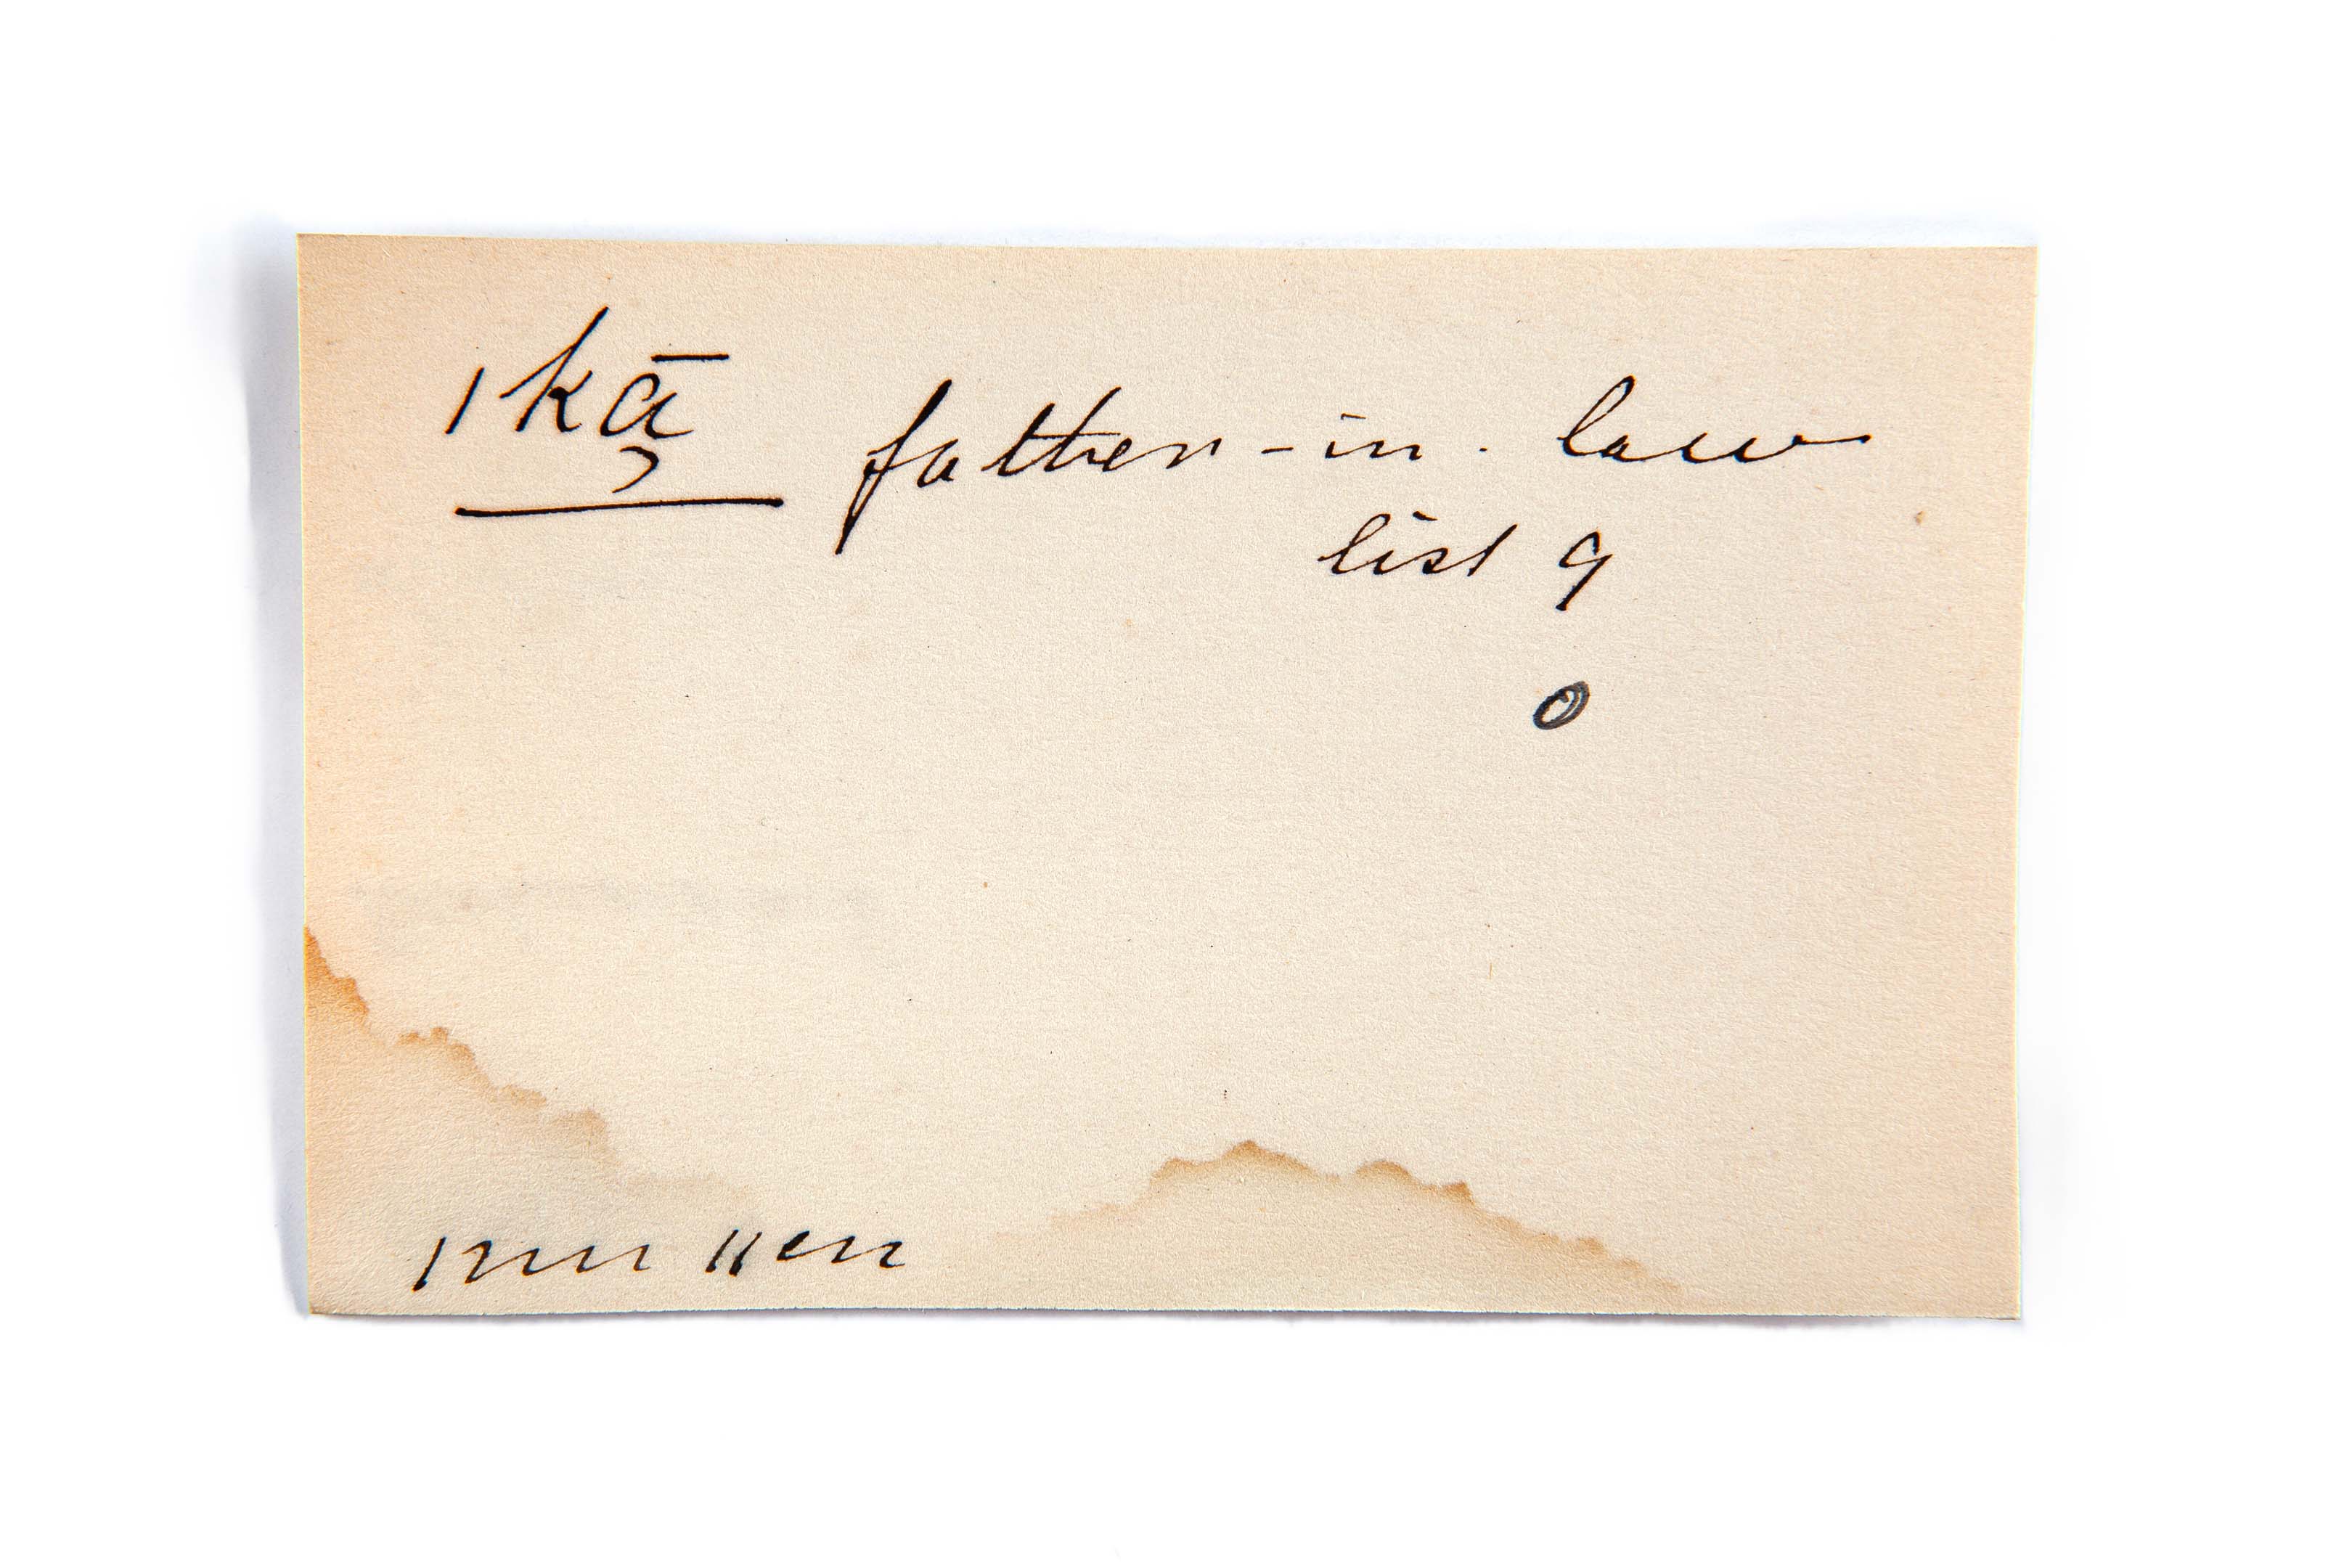 iką̄ father-in-law
list 9
0